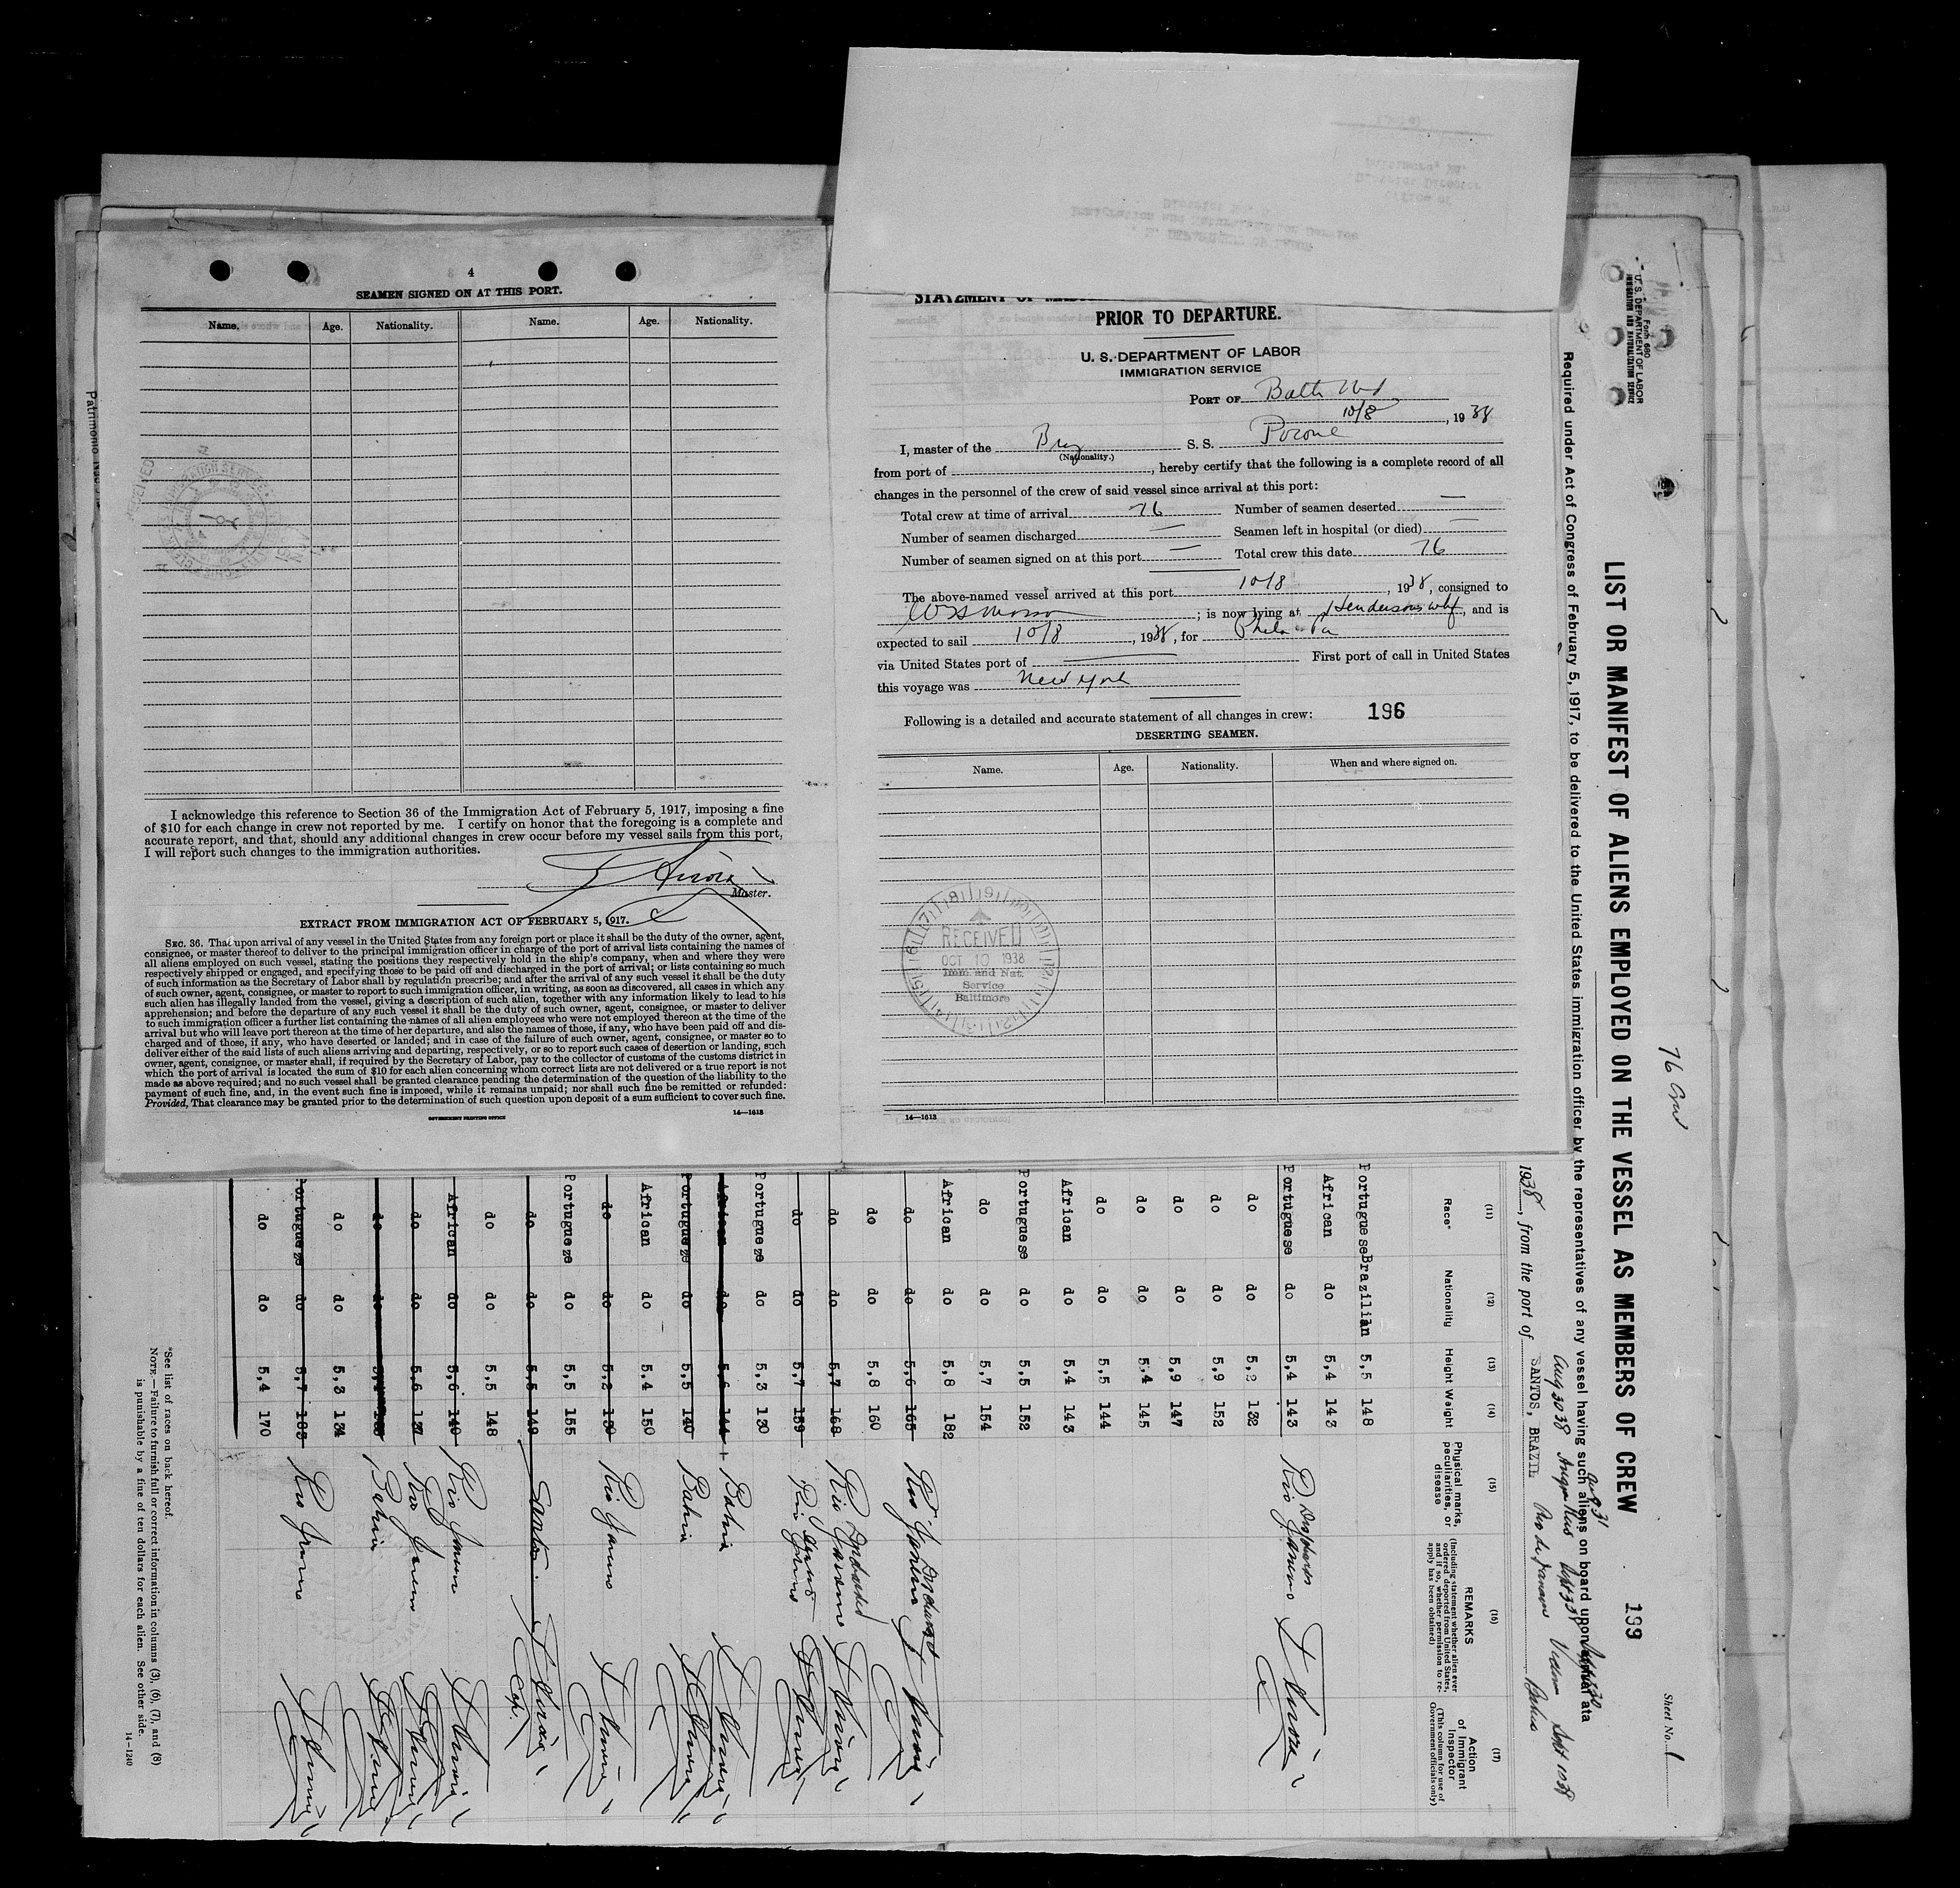 4
SEAMEN SIGNED ON AT THIS PORT.
Name. Age. Nationality. Name. Age. Nationality.
I acknowledge this reference to Section 36 of the Immigration Act of February 5, 1917, imposing a fine
of $10 for each change in crew not reported by me. I certify on honor that the foregoing is a complete and
accurate report, and that, should any additional changes in crew occur before my vessel sails from this port,
I will report such changes to the immigration authorities.
Master.
EXTRACT FROM IMMIGRATION ACT OF FEBRUARY 5, 1917.
SEC. 36. That upon arrival of any vessel in the United States from any foreign port or place it shall be the duty of the owner, agent,
consignee, or master thereof to deliver to the principal immigration officer in charge of the port of arrival lists containing the names of
all aliens employed on such vessel, stating the positions they respectively hold in the ship's company, when and where they were
respectively shipped or engaged, and specifying those to be paid off and discharged in the port of arrival; or lists containing so much
of such information as the Secretary of Labor shall by regulation prescribe; and after the arrival of any such vessel it shall be the duty
of such owner, agent, consignee, or master to report to such immigration officer, in writing, as soon as discovered, all cases in which any
such alien has illegally landed from the vessel, giving a description of such alien, together with any information likely to lead to his
apprehension; and before the departure of any such vessel it shall be the duty of such owner, agent, consignee, or master to deliver
to such immigration officer a further list containing the names of all alien employees who were not employed thereon at the time of the
arrival but who will leave port thereon at the time of her departure, and also the names of those, if any, who have been paid off and dis-
charged and of those, if any, who have deserted or landed; and in case of the failure of such owner, agent, consignee, or master so to
deliver either of the said lists of such aliens arriving and departing, respectively, or so to report such cases of desertion or landing, such
owner, agent, consignee, or master shall, if required by the Secretary of Labor, pay to the collector of customs of the customs district in
which the port of arrival is located the sum of $10 for each alien concerning whom correct lists are not delivered or a true report is not
made as above required; and no such vessel shall be granted clearance pending the determination of the question of the liability to the
payment of such fine, and, in the event such fine is imposed, while it remains unpaid; nor shall such fine be remitted or refunded:
Provided, That clearance may be granted prior to the determination of such question upon deposit of a sum sufficient to cover such fine.
GOVERNMENT PRINTING OFFICE 14—1613
PRIOR TO DEPARTURE.
U. S. DEPARTMENT OF LABOR
IMMIGRATION SERVICE
PORT OF Balto Md
10/8, 1938
I, master of the Braz S. S.
(Nationality.)
from port of , hereby certify that the following is a complete record of all
changes in the personnel of the crew of said vessel since arrival at this port:
Total crew at time of arrival 76 Number of seamen deserted —
Number of seamen discharged — Seamen left in hospital (or died) —
Number of seamen signed on at this port — Total crew this date 76
The above-named vessel arrived at this port 10/8, 1938, consigned to
; is now lying at Hendersons whf, and is
expected to sail 10/8, 1938, for Phila Pa
via United States port of — First port of call in United States
this voyage was New York
Following is a detailed and accurate statement of all changes in crew: 196
DESERTING SEAMEN.
Name. Age. Nationality. When and where signed on.
RECEIVED
OCT 10 1938
Imm. and Nat.
Service
Baltimore
14—1613
Form 680
U. S. DEPARTMENT OF LABOR
IMMIGRATION AND NATURALIZATION SERVICE
Sheet No. 1
76 Crew
LIST OR MANIFEST OF ALIENS EMPLOYED ON THE VESSEL AS MEMBERS OF CREW 199
Required under Act of Congress of February 5, 1917, to be delivered to the United States immigration officer by the representatives of any vessel having such aliens on board upon arrival at a
1938, from the port of SANTOS, BRAZIL Rio de Janeiro
(11) (12) (13) (14) (15) (16) (17)
Race* Nationality Height Weight Physical marks, peculiarities, or disease REMARKS (Including statement whether alien ever ordered deported from United States, and if so, whether permission to reapply has been obtained) Action of Immigrant Inspector (This column for use of Government officials only)
Portuguese Brazilian 5,5 148
African do 5,4 143
Portuguese do 5,4 143 Rio Janeiro
do do 5,2 132
do do 5,9 152
do do 5,9 147
do do 5,4 145
do do 5,5 144
African do 5,4 143
Portuguese do 5,5 152
do do 5,7 154
African do 5,8 182
do do 5,6 165
do do 5,8 160
do do 5,7 168
do do 5,7 159
Portugueze do 5,3 130
African do 5,6 144 Bahia
Portugueze do 5,5 140 Bahia
African do 5.4 150
do do 5,2 130 Rio Janeiro
Portugueze do 5,5 155
do do 5,5 149 Santos
do do 5,5 148
African do 5,6 140 Rio Janeiro
do do 5,6 137 Rio Janeiro
Bahia
do do 5,3 134
Portugueze do 5,7 183 Rio Janeiro
do do 5,4 170
*See list of races on back hereof.
NOTE.—Failure to furnish full or correct information in columns (3), (6), (7), and (8)
is punishable by a fine of ten dollars for each alien. See other side.
14—1240